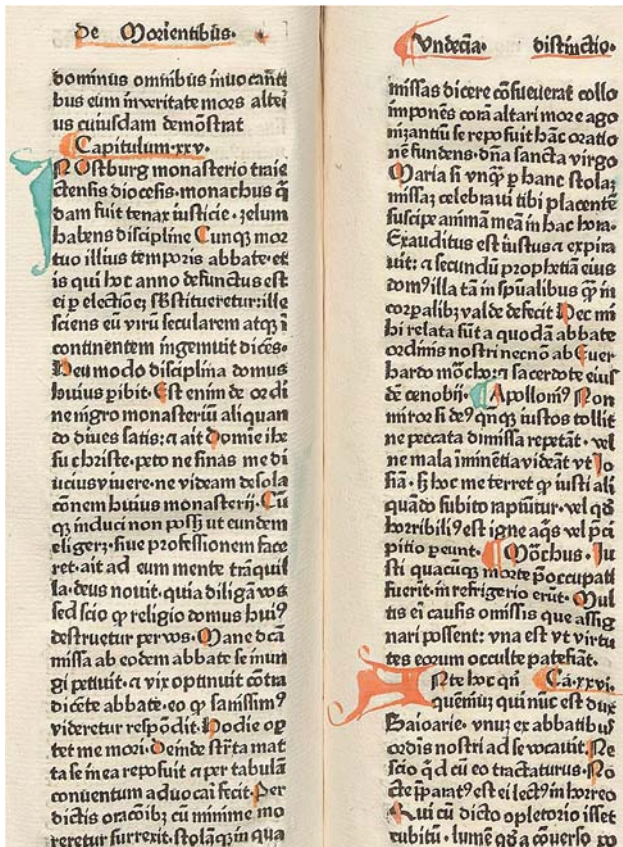 De Morientibus.
dominus omnibus inuocanti
bus eum in veritate mors altei
us cuiusdam demōstrat
Capitulum.xxv.
IN Ostburg monasterio traie
ctensis diocesis.monachus q̄
dam fuit tenax iusticie.zelum
habens discipline Cunqꝫ mor
tuo illius temporis abbate.et
is qui hoc anno defunctus est
ei ꝑ electioēꝫ sb̄stitueretur:ille
sciens eū virū secularem atqꝫ ī
continentem ingemuit dicēs.
Heu modo disciplina domus
huius ꝑibit.Est enim de ordi
ne nigro monasteriū aliquan
do diues satis:⁊ ait Domine ihe
su christe.peto ne sinas me di
ucius viuere.ne videam desola
cōnem huius monasterij.Cū
qꝫ induci non possꝫ ut eundem
eligerꝫ.siue professionem face
ret.ait ad eum mente trāquil
la.deus nouit.quia diligā vos
sed scio ꝙ religio domus huiꝰ
destruetur per vos.Mane dcā
missa ab eodem abbate se inun
gi petiuit.⁊ vix optinuit cōtra
dicēte abbate.eo ꝙ sanissimꝰ
videretur respōdit.Hodie opͦ
tet me mori.deinde strāta mat
ta se in ea reposuit ⁊ per tabulā
conuentum aduocari fecit.Per
dictis oracōibꝫ cū minime mo
reretur surrexit.stolāqꝫ in qua
Vndecīa. distinctio.
missas dicere cōsueuerat collo
imponēs corā altari more ago
nizantiū se reposuit hāc oratio
nē fundens.dn̄a sancta virgo
Maria si vnqꝫ ꝑ hanc stolaꝫ
missaꝫ celebraui tibi placentē
suscipe animām meā in hac hora.
Exauditus est iustus ⁊ expira
uit:⁊ secundū prophetiā eius
domꝰ illa tā in spūalibus ꝙ̄ in
corꝑalibꝫ valde defecit Hec mi
hi relata sūt a quodā abbate
ordinis nostri necnō ab Euer
hardo mōcho:⁊ sacerdote eius
dē cenobij. Apolloniꝰ Non
miror si deꝰ qn̄qꝫ iustos tollit
ne peccata dimissa repetāt.vel
ne mala iminētia videāt vt Io
siā.sꝫ hoc me terret ꝙ iusti ali
quādo subito rapiūtur.vel qd̄
horribiliꝰ est igne aq̄s vel p̄ci
pitio ꝑeunt. Mōchus. Iu
sti quacūqꝫ morte p̄occupati
fuerit.in refrigerio erūt.Mul
tis ei causis omissis que assig
nari possent:vna est vt virtu
tes eorum occulte patefiant.
ANte hoc qn̄ Ca.xxvi.
quēniuꝫ qui nunc est dux
Baioarie.vnuꝫ ex abbatibus
ordīs nostri ad se vocauit.Ne
scio q̄d cū eo tractaturus.No
cte p̄paratꝰ est ei lectꝰ in horreo
Qui cū dicto opletorio isset
cubitū.lumē qd̄ a cōuerso po